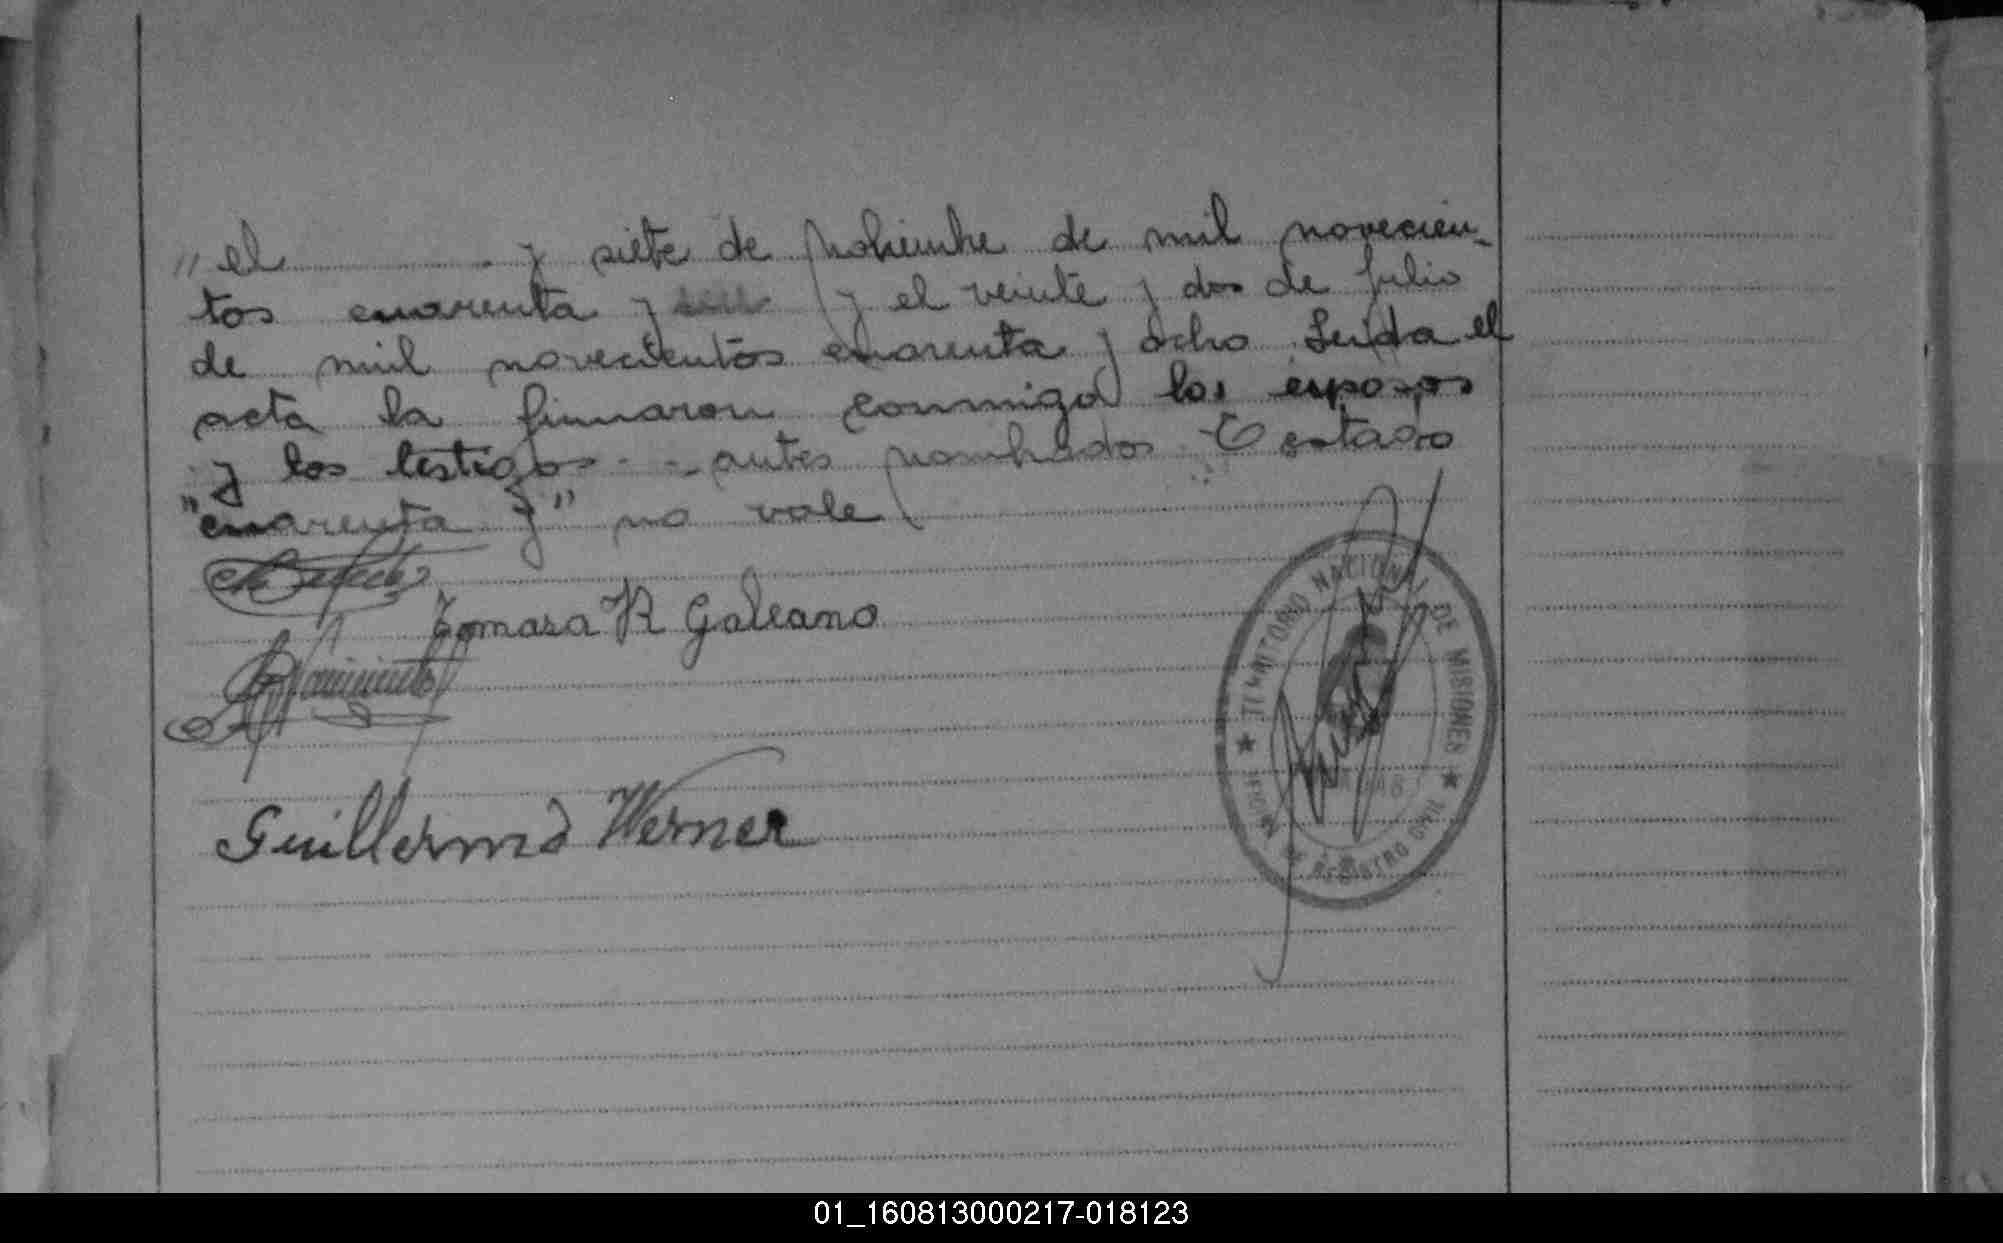 " el y siete de Nobiembre de mil novecien-
tos cuarenta y y el veinte y dos de Julio
de mil novecientos cuarenta y ocho Leida el
acta la firmaron conmigo los esposos
y los testigos - - antes nombrados Testado
"cuarenta y" no vale
Tomasa R Galeano
Guillermo Werner
TERRITORIO NACIONAL DE MISIONES
REGISTRO CIVIL
01_160813000217-018123